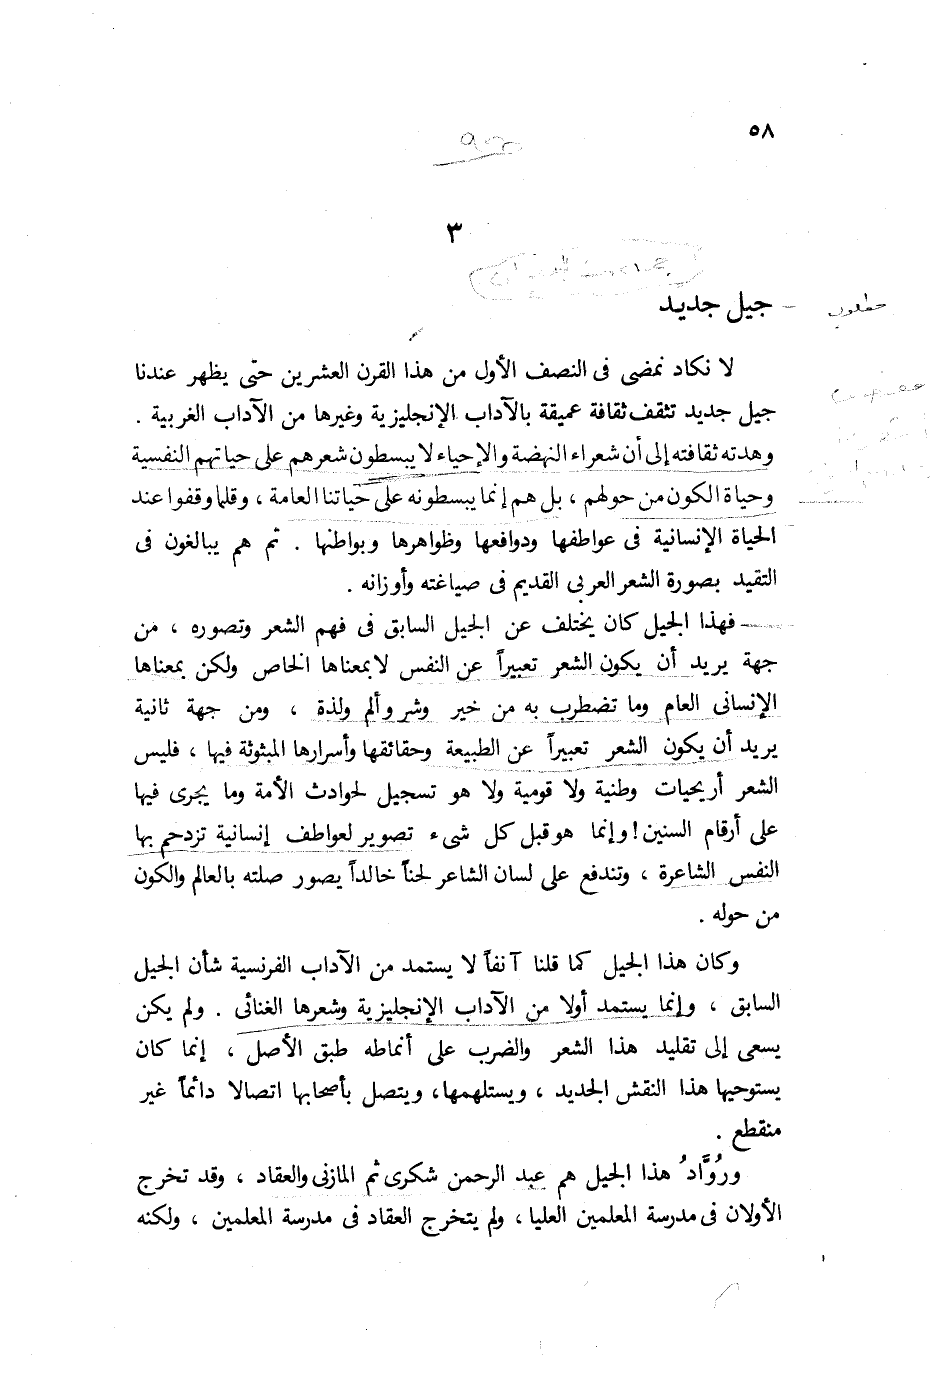 ٥٨
٣
جيل جديد
مطلوب
لا نكاد نمضى فى النصف الأول من هذا القرن العشرين حتى يظهر عندنا
جيل جديد تثقف ثقافة عميقة بالآداب الإنجليزية وغيرها من الآداب الغربية .
وهدته ثقافته إلى أن شعراء النهضة والإحياء لا يبسطون شعرهم على حياتهم النفسية
وحياة الكون من حولهم ، بل هم إنما يبسطونه على حياتنا العامة ، وقلما وقفوا عند
الحياة الإنسانية فى عواطفها ودوافعها وظواهرها وبواطنها . ثم هم يبالغون فى
التقيد بصورة الشعر العربى القديم فى صياغته وأوزانه .
فهذا الجيل كان يختلف عن الجيل السابق فى فهم الشعر وتصوره ، من
جهة يريد أن يكون الشعر تعبيراً عن النفس لا بمعناها الخاص ولكن بمعناها
الإنسانى العام وما تضطرب به من خير وشر وألم ولذة ، ومن جهة ثانية
يريد أن يكون الشعر تعبيراً عن الطبيعة وحقائقها وأسرارها المبثوثة فيها ، فليس
الشعر أريحيات وطنية ولا قومية ولا هو تسجيل لحوادث الأمة وما يجرى فيها
على أرقام السنين ! وإنما هو قبل كل شىء تصوير لعواطف إنسانية تزدحم بها
النفس الشاعرة ، وتندفع على لسان الشاعر لحناً خالداً يصور صلته بالعالم والكون
من حوله .
وكان هذا الجيل كما قلنا آنفاً لا يستمد من الآداب الفرنسية شأن الجيل
السابق ، وإنما يستمد أولا من الآداب الإنجليزية وشعرها الغنائى . ولم يكن
يسعى إلى تقليد هذا الشعر والضرب على أنماطه طبق الأصل ، إنما كان
يستوحيها هذا النقش الجديد ، ويستلهمها ، ويتصل بأصحابها اتصالا دائماً غير
منقطع .
ورُوَّادُ هذا الجيل هم عبد الرحمن شكرى ثم المازنى والعقاد ، وقد تخرج
الأولان فى مدرسة المعلمين العليا ، ولم يتخرج العقاد فى مدرسة المعلمين ، ولكنه